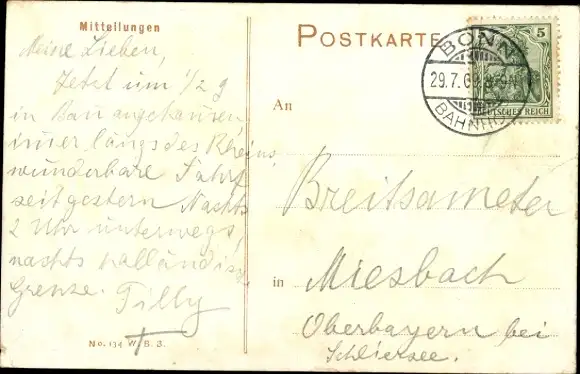 Mitteilungen
Meine Lieben,
Jetzt um 1/2 9
in Bonn angekommen,
immer längs des Rheins,
wunderbare Fahrt
seit gestern Nachts
2 Uhr unterwegs,
nachts holländische
Grenze. Tilly
No. 134 W. B. S.
POSTKARTE
BONN
29.7.0
BAHNH
5
DEUTSCHES REICH
An
Breitsameter
in Miesbach
Oberbayern bei
Schliersee.